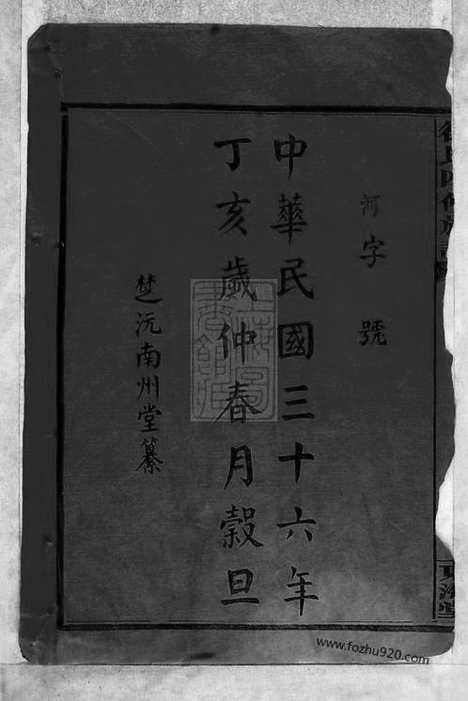 河字號
中華民國三十六年
丁亥歲仲春月穀旦
楚沅南州堂纂
www.fozhu920.com